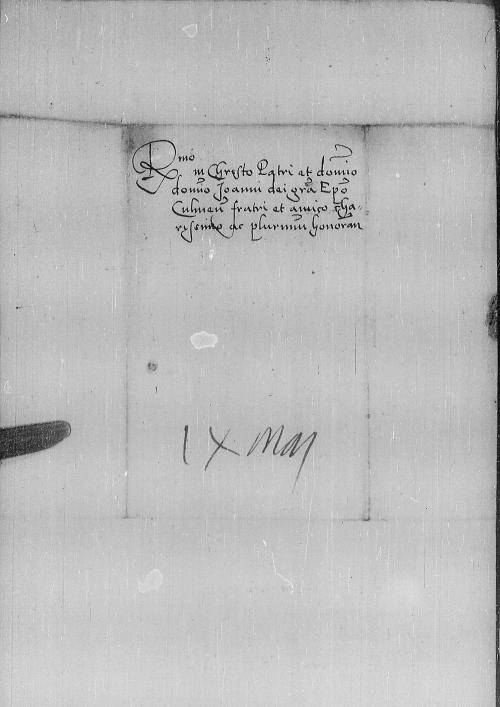 Rmo
in Christo Patri et domino
domino Joanni dei gra Epo
Culmen fratri et amico cha-
rissimo ac plurimum honoran
IX Maij